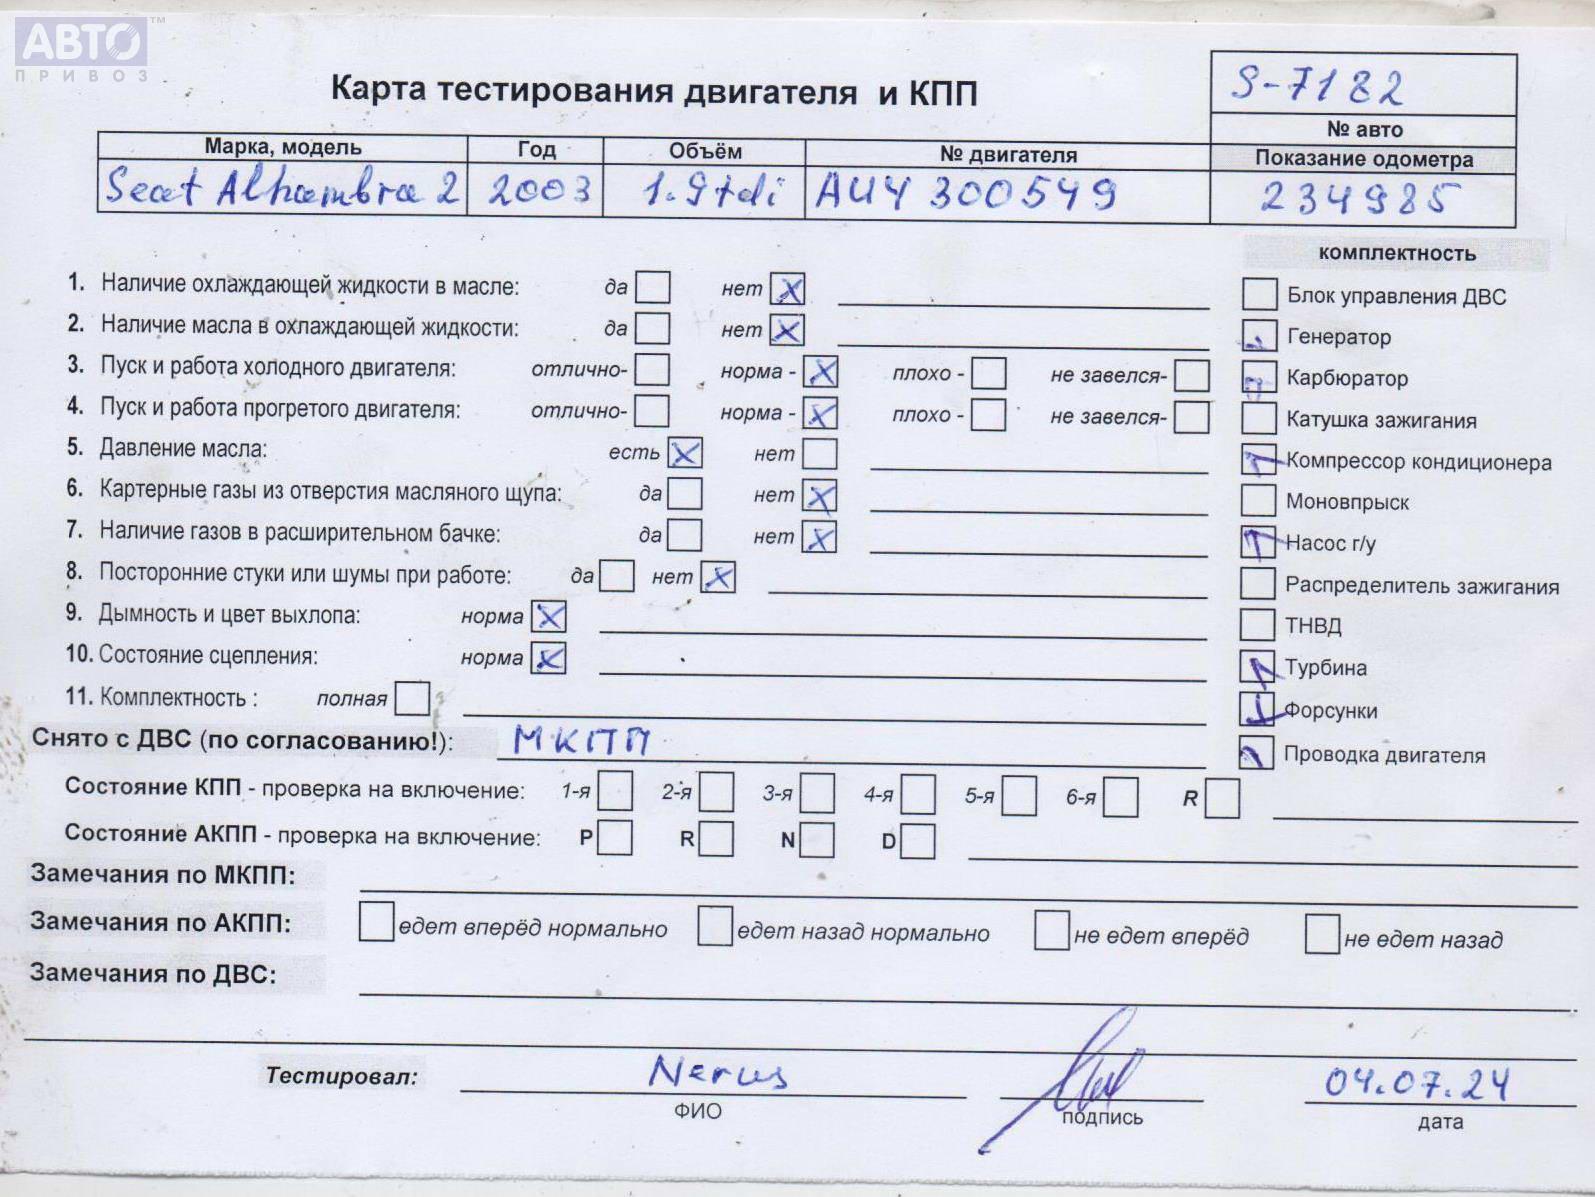 АВТО™
ПРИВОЗ
Карта тестирования двигателя и КПП
S-7182
№ авто
Марка, модель Год Объём № двигателя Показание одометра
Seat Alhambra 2 2003 1.9tdi AUY 300549 234985
комплектность
1. Наличие охлаждающей жидкости в масле: да нет
Блок управления ДВС
2. Наличие масла в охлаждающей жидкости: да нет
Генератор
3. Пуск и работа холодного двигателя: отлично- норма - плохо - не завелся-
Карбюратор
4. Пуск и работа прогретого двигателя: отлично- норма - плохо - не завелся-
Катушка зажигания
5. Давление масла: есть нет
Компрессор кондиционера
6. Картерные газы из отверстия масляного щупа: да нет
Моновпрыск
7. Наличие газов в расширительном бачке: да нет
Насос г/у
8. Посторонние стуки или шумы при работе: да нет
Распределитель зажигания
9. Дымность и цвет выхлопа: норма
ТНВД
10. Состояние сцепления: норма
Турбина
11. Комплектность : полная
Форсунки
Снято с ДВС (по согласованию!): МКПП
Проводка двигателя
Состояние КПП - проверка на включение: 1-я 2-я 3-я 4-я 5-я 6-я R
Состояние АКПП - проверка на включение: P R N D
Замечания по МКПП:
Замечания по АКПП: едет вперёд нормально едет назад нормально не едет вперёд не едет назад
Замечания по ДВС:
Тестировал: Nerus 04.07.24
ФИО подпись дата